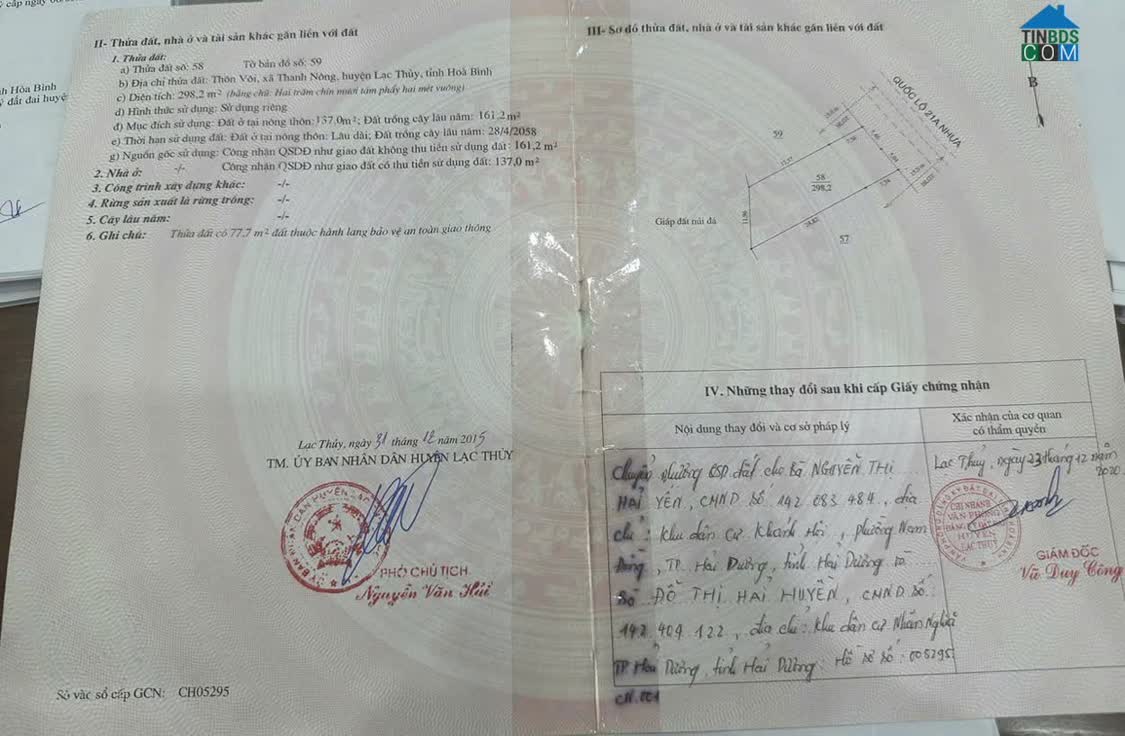 cấp ngày
nh Hòa Bình
đất đai huyệ
II- Thửa đất, nhà ở và tài sản khác gắn liền với đất
1. Thửa đất:
a) Thửa đất số: 58 Tờ bản đồ số: 59
b) Địa chỉ thửa đất: Thôn Vôi, xã Thanh Nông, huyện Lạc Thủy, tỉnh Hoà Bình
c) Diện tích: 298,2 m² (bằng chữ: Hai trăm chín mươi tám phẩy hai mét vuông)
d) Hình thức sử dụng: Sử dụng riêng
đ) Mục đích sử dụng: Đất ở tại nông thôn: 137,0m²; Đất trồng cây lâu năm: 161,2m²
e) Thời hạn sử dụng đất: Đất ở tại nông thôn: Lâu dài; Đất trồng cây lâu năm: 28/4/2058
g) Nguồn gốc sử dụng: Công nhận QSDĐ như giao đất không thu tiền sử dụng đất: 161,2 m²
Công nhận QSDĐ như giao đất có thu tiền sử dụng đất: 137,0 m²
2. Nhà ở: -/-
3. Công trình xây dựng khác: -/-
4. Rừng sản xuất là rừng trồng: -/-
5. Cây lâu năm: -/-
6. Ghi chú: Thửa đất có 77,7 m² đất thuộc hành lang bảo vệ an toàn giao thông
Lạc Thủy, ngày 31 tháng 12 năm 2015
TM. ỦY BAN NHÂN DÂN HUYỆN LẠC THỦY
PHÓ CHỦ TỊCH
Nguyễn Văn Hải
Số vào sổ cấp GCN: CH05295
III- Sơ đồ thửa đất, nhà ở và tài sản khác gắn liền với đất
TINBDS
COM
B
QUỐC LỘ 21A NHỰA
59
58
298,2
Giáp đất núi đá
57
IV. Những thay đổi sau khi cấp Giấy chứng nhận
Nội dung thay đổi và cơ sở pháp lý
Xác nhận của cơ quan
có thẩm quyền
Chuyển nhượng QSD đất cho Bà NGUYỄN THỊ
HẢI YẾN, CMND số 142 083 484, địa
chỉ: Khu dân cư Khánh Hội, phường Nam
Đồng, TP. Hải Dương, tỉnh Hải Dương và
Bà ĐỖ THỊ HẢI HUYỀN, CMND số
142 404 122, địa chỉ: Khu dân cư Nhân Nghĩa
TP Hải Dương, tỉnh Hải Dương: Hồ sơ số: 005295
CN.001
Lạc Thủy, ngày 23 tháng 12 năm
2020
CHI NHÁNH
VĂN PHÒNG
ĐĂNG KÝ ĐẤT ĐAI
HUYỆN
LẠC THỦY
GIÁM ĐỐC
Vũ Duy Công